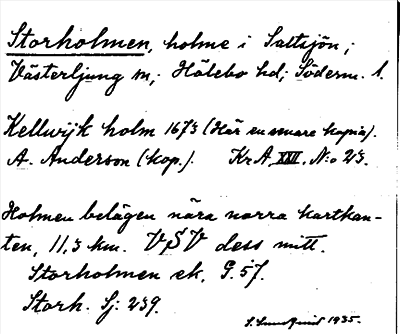 Storholmen, holme i Saltsjön;
Västerljung sn; Hölebo hd; Söderm. l.
Kellwijk holm 1673 (Här en senare kopia).
A. Anderson (kop.). KrA, XXI, N:o 23.
Holmen belägen nära norra kartkan-
ten, 11,3 km. VSV dess mitt.
Storholmen ek. G. 57.
Storh. Sj: 239.
S. Sundquist 1935.